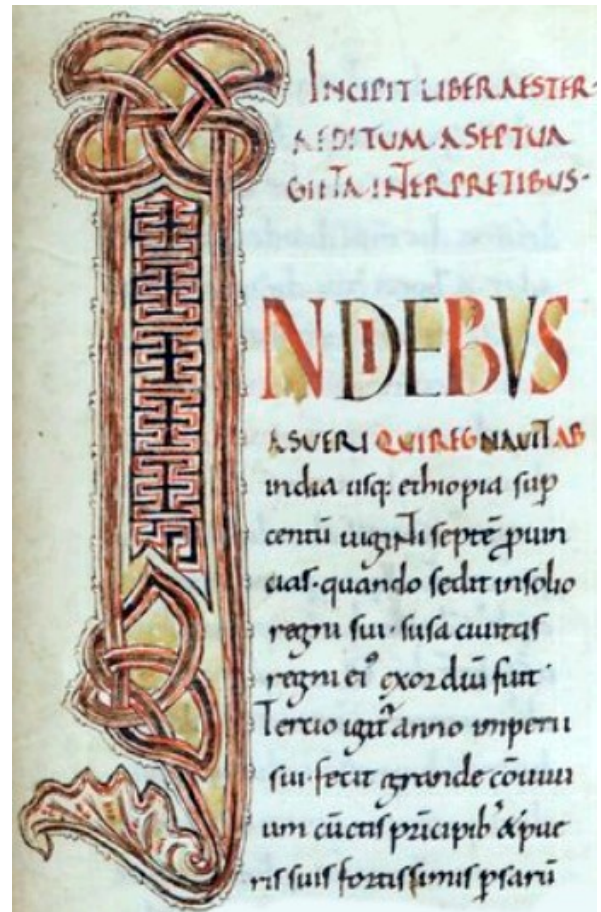 INCIPIT LIBER AESTER·
AEDITUM A SEPTUA
GINTA INTERPRETIBUS·
IN DIEBUS
ASUERI QUI REGNAVIT AB
india usq: ethiopia sup̄
centū uiginti septē ꝓuin
cias· quando sedit insolio
regni sui· susa ciuitas
regni eiꝰ exordiū fuit·
Tercio igit᷑ anno imperii
sui· fecit grande cōuiui
um cūctis pͥncipib᾽ & pue
ris suis fortissimis ꝑsarū